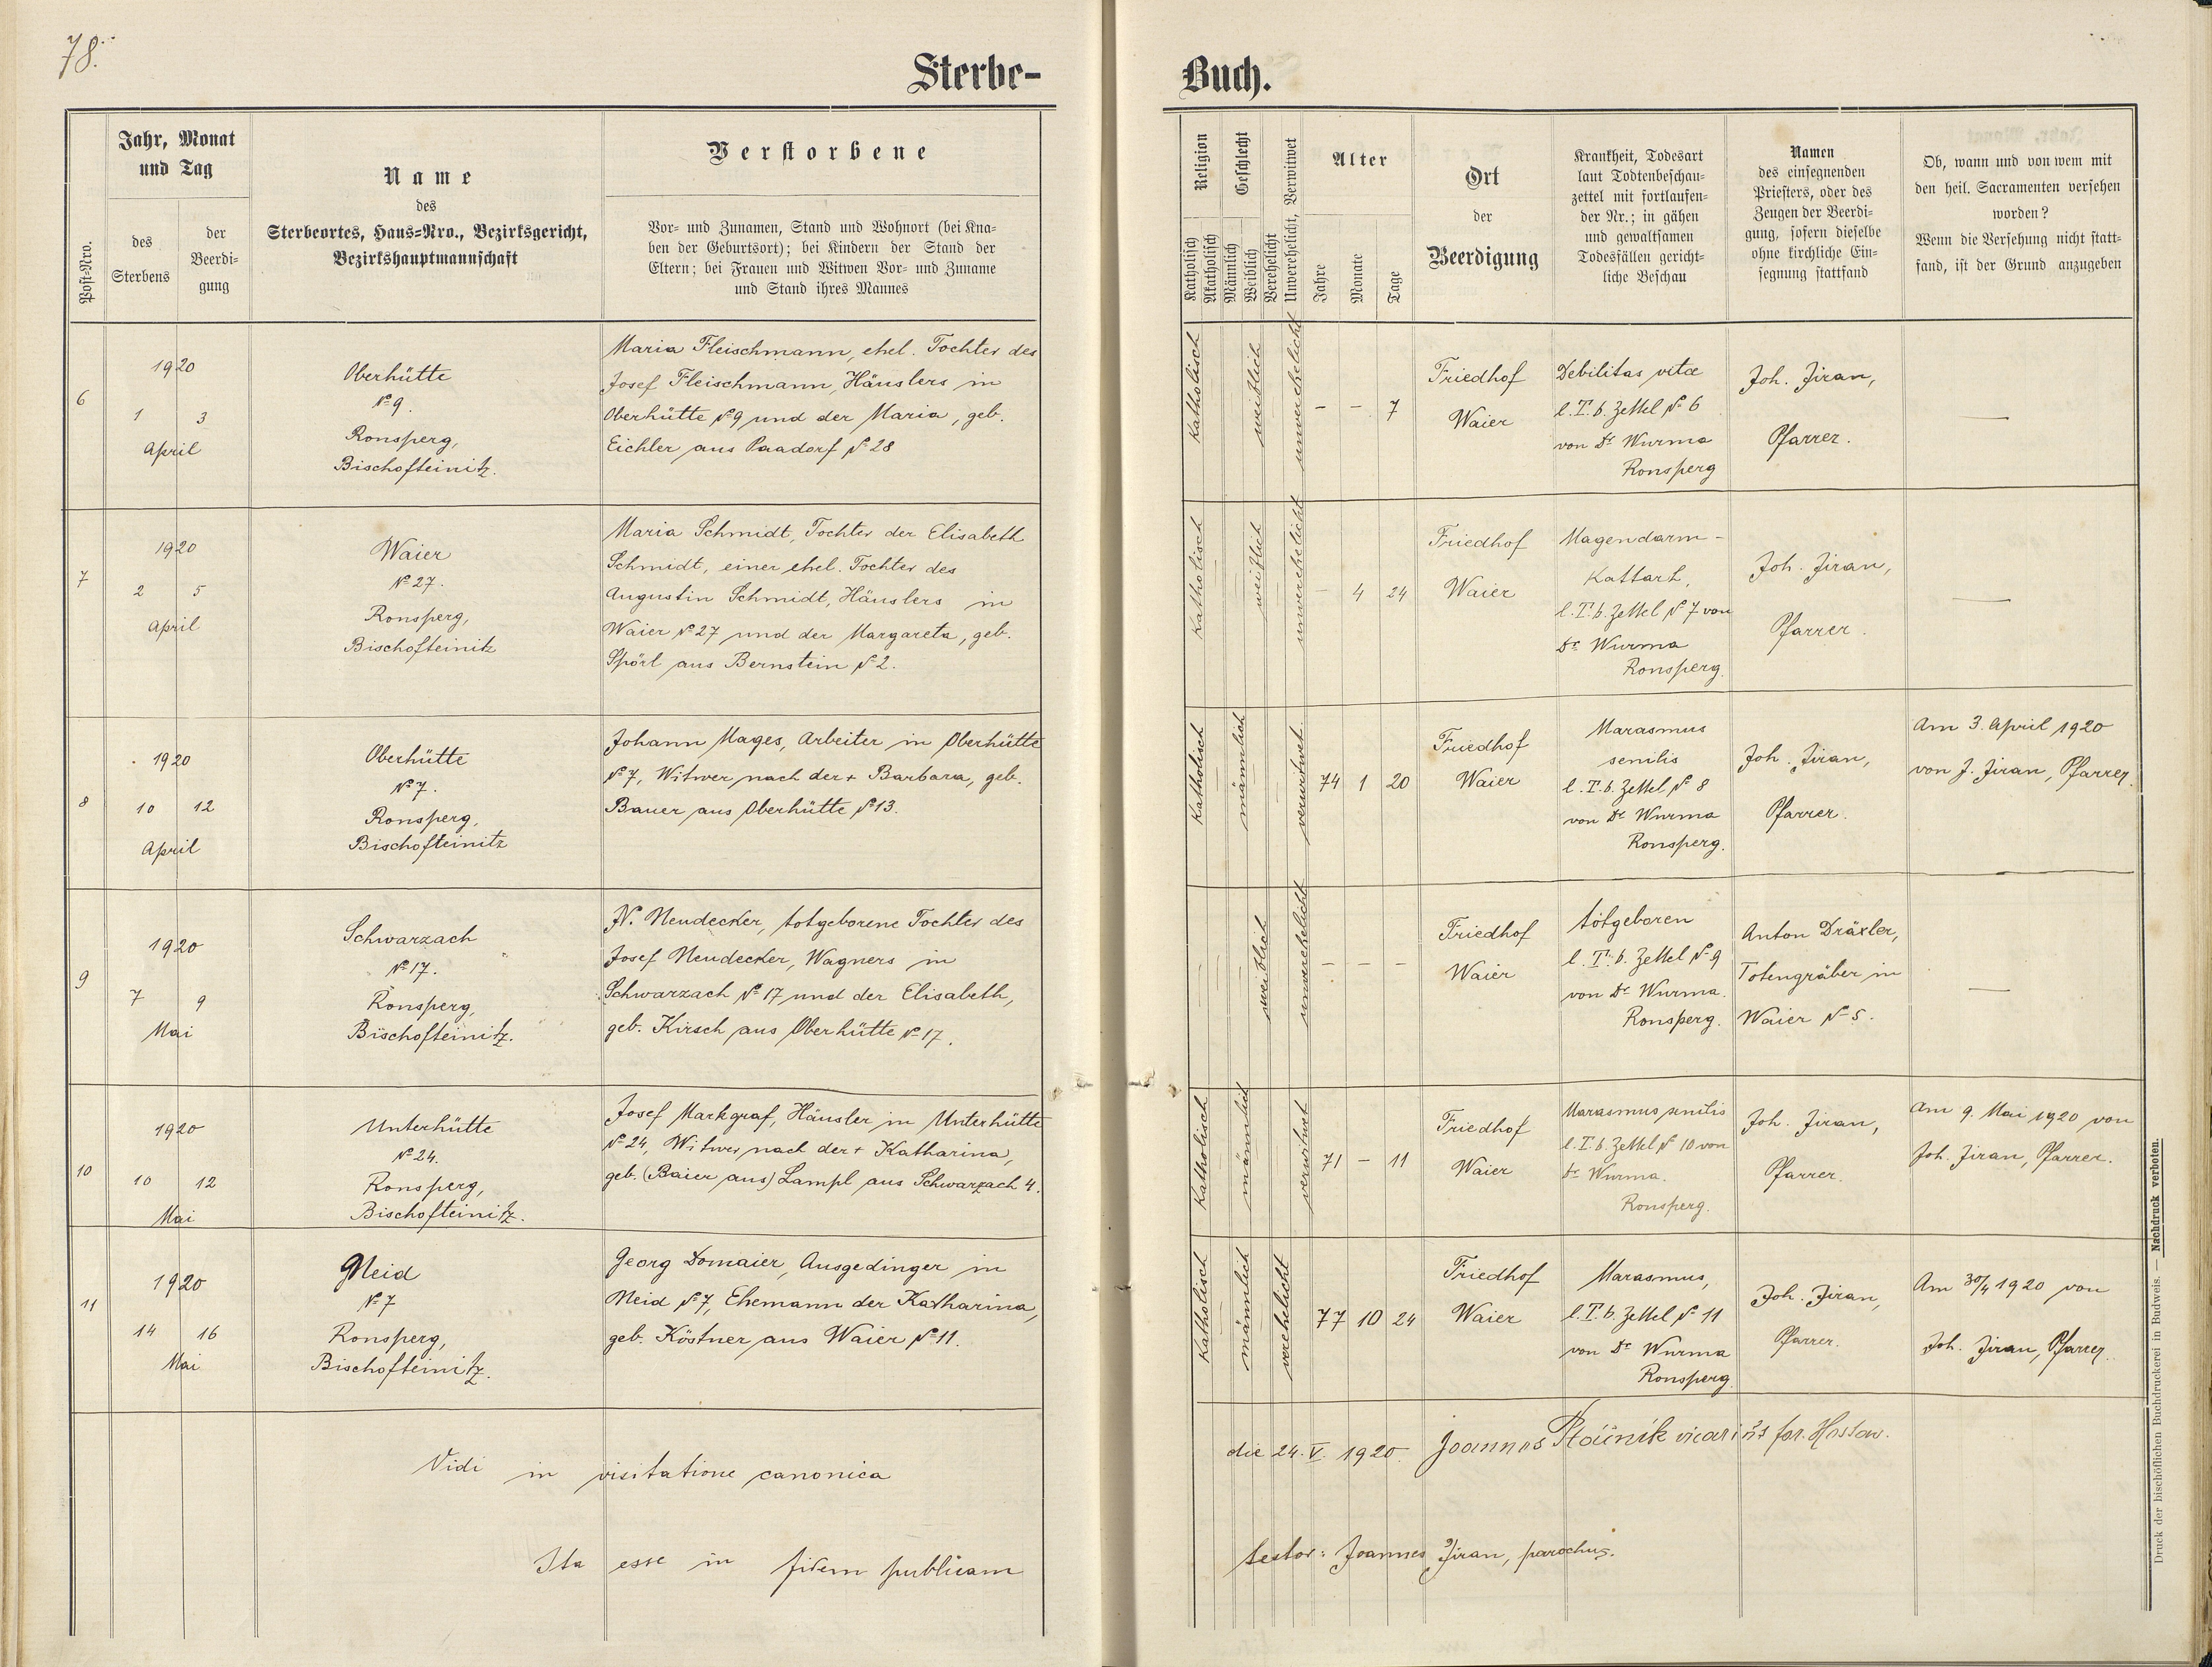 78.
Sterbe-Buch.
Post-Nro.
Jahr, Monat
und Tag
des
Sterbens
der
Beerdi-
gung
Name
des
Sterbeortes, Haus-Nro., Bezirksgericht,
Bezirkshauptmannschaft
Verstorbene
Vor- und Zunamen, Stand und Wohnort (bei Kna-
ben der Geburtsort); bei Kindern der Stand der
Eltern; bei Frauen und Witwen Vor- und Zuname
und Stand ihres Mannes
Religion
Katholisch
Akatholisch
Geschlecht
Männlich
Weiblich
Verehelicht
Unverehelicht, Verwitwet
Alter
Jahre
Monate
Tage
Ort
der
Beerdigung
Krankheit, Todesart
laut Todtenbeschau-
zettel mit fortlaufen-
der Nr.; in gähen
und gewaltsamen
Todesfällen gericht-
liche Beschau
Namen
des einsegnenden
Priesters, oder des
Zeugen der Beerdi-
gung, sofern dieselbe
ohne kirchliche Ein-
segnung stattfand
Ob, wann und von wem mit
den heil. Sacramenten versehen
worden?
Wenn die Versehung nicht statt-
fand, ist der Grund anzugeben
6
1920
1 3
April
Oberhütte
№ 9.
Ronsperg,
Bischofteinitz.
Maria Fleischmann, ehel. Tochter des
Josef Fleischmann, Häuslers in
Oberhütte № 9 und der Maria, geb.
Eichler aus Paadorf № 28
Katholisch
weiblich
unverehelicht
- - 7
Friedhof
Waier
Debilitas vitae
l. T. b. Zettel № 6
von Dr Wurma
Ronsperg
Joh. Jiran,
Pfarrer.
—
7
1920
2 5
April
Waier
№ 27.
Ronsperg,
Bischofteinitz
Maria Schmidt, Tochter der Elisabeth
Schmidt, einer ehel. Tochter des
Augustin Schmidt, Häuslers in
Waier № 27 und der Margareta, geb.
Spörl aus Bernstein № 2.
Katholisch
weiblich
unverehelicht
- 4 24
Friedhof
Waier
Magendarm-
Kattarh,
l. T. b. Zettel № 7 von
Dr Wurma
Ronsperg.
Joh. Jiran,
Pfarrer.
—
8
1920
10 12
April
Oberhütte
№ 7.
Ronsperg,
Bischofteinitz
Johann Mages, Arbeiter in Oberhütte
№ 7, Witwer nach der + Barbara, geb.
Bauer aus Oberhütte № 13.
Katholisch
männlich
verwitwet.
74 1 20
Friedhof
Waier
Marasmus
senilis
l. T. b. Zettel № 8
von Dr Wurma
Ronsperg.
Joh. Jiran,
Pfarrer.
Am 3. April 1920
von J. Jiran, Pfarrer.
9
1920
7 9
Mai
Schwarzach
№ 17.
Ronsperg,
Bischofteinitz.
N. Neudecker, totgeborene Tochter des
Josef Neudecker, Wagners in
Schwarzach № 17 und der Elisabeth,
geb. Kirsch aus Oberhütte № 17.
weiblich
unverehelicht
- - -
Friedhof
Waier
totgeboren
l. T. b. Zettel № 9
von Dr Wurma.
Ronsperg.
Anton Dräxler,
Totengräber in
Waier № 5.
—
10
1920
10 12
Mai
Unterhütte
№ 24.
Ronsperg,
Bischofteinitz.
Josef Markgraf, Häusler in Unterhütte
№ 24, Witwer nach der + Katharina,
geb. (Baier aus) Lampl aus Schwarzach 4.
Katholisch
männlich
verwitwet
71 - 11
Friedhof
Waier
Marasmus senilis
l. T. b. Zettel № 10 von
Dr Wurma.
Ronsperg.
Joh. Jiran,
Pfarrer.
Am 9. Mai 1920 von
Joh. Jiran, Pfarrer.
11
1920
14 16
Mai
Neid
№ 7
Ronsperg,
Bischofteinitz.
Georg Domaier, Ausgedinger in
Neid № 7, Ehemann der Katharina,
geb. Köstner aus Waier № 11.
Katholisch
männlich
verehelicht
77 10 24
Friedhof
Waier
Marasmus,
l. T. b. Zettel № 11
von Dr Wurma
Ronsperg
Joh. Jiran,
Pfarrer.
Am 30/4 1920 von
Joh. Jiran, Pfarrer.
Vidi in visitatione canonica die 24. V. 1920. Joannes vicarius for.
Ita esse in fidem publicam testor: Joannes Jiran, parochus.
Druck der bischöflichen Buchdruckerei in Budweis. — Nachdruck verboten.